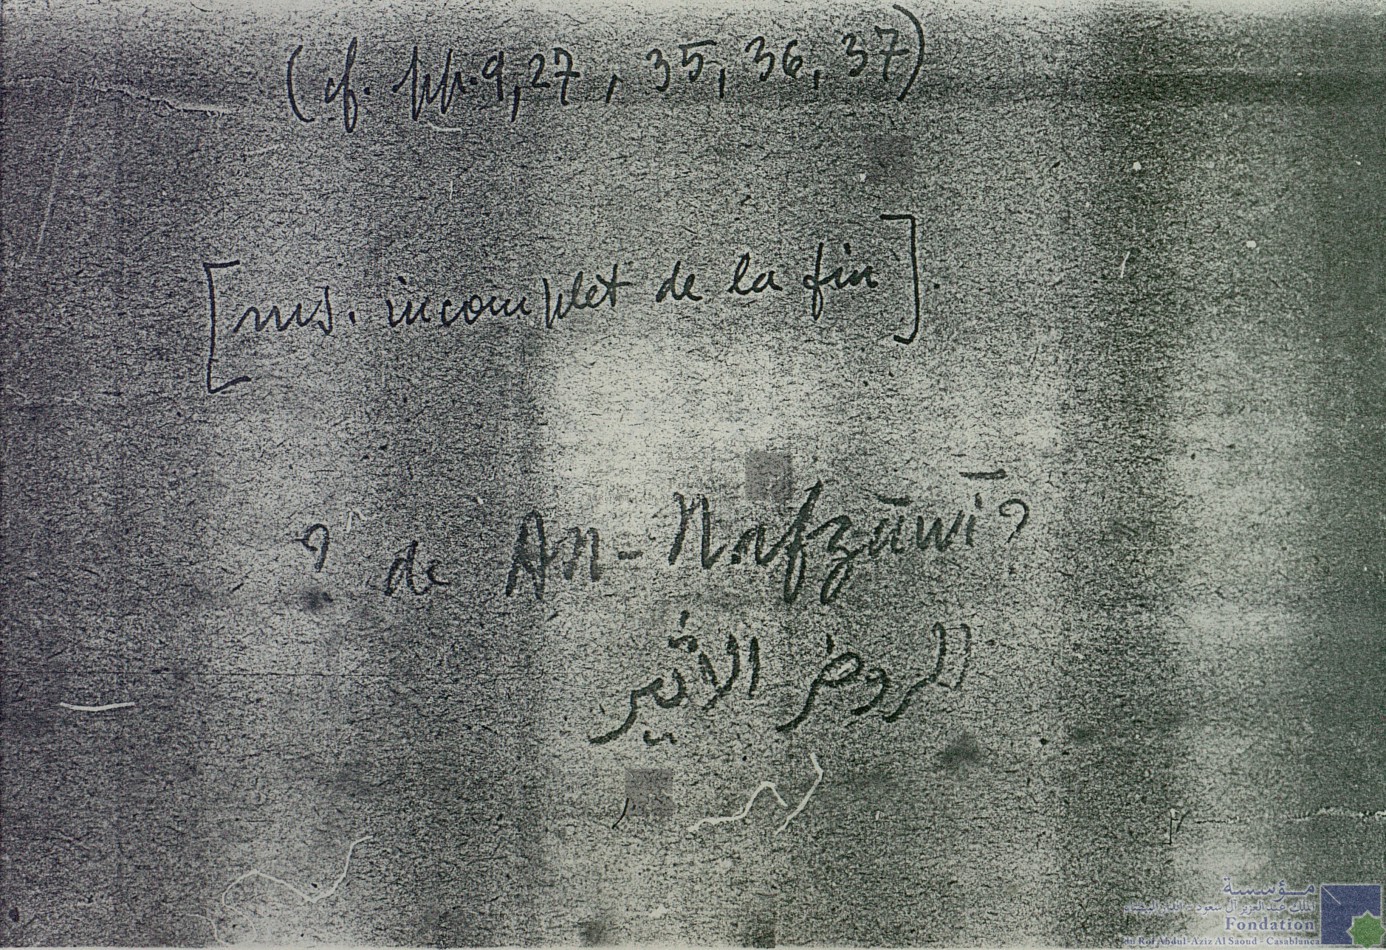 (cf. pp. 9, 27, 35, 36, 37)
[ms. incomplet de la fin].
? de An-Nafzāwī ?
الروض الاثير
مؤسسة
الملك عبد العزيز آل سعود - الدار البيضاء
Fondation
du Roi Abdul-Aziz Al Saoud - Casablanca